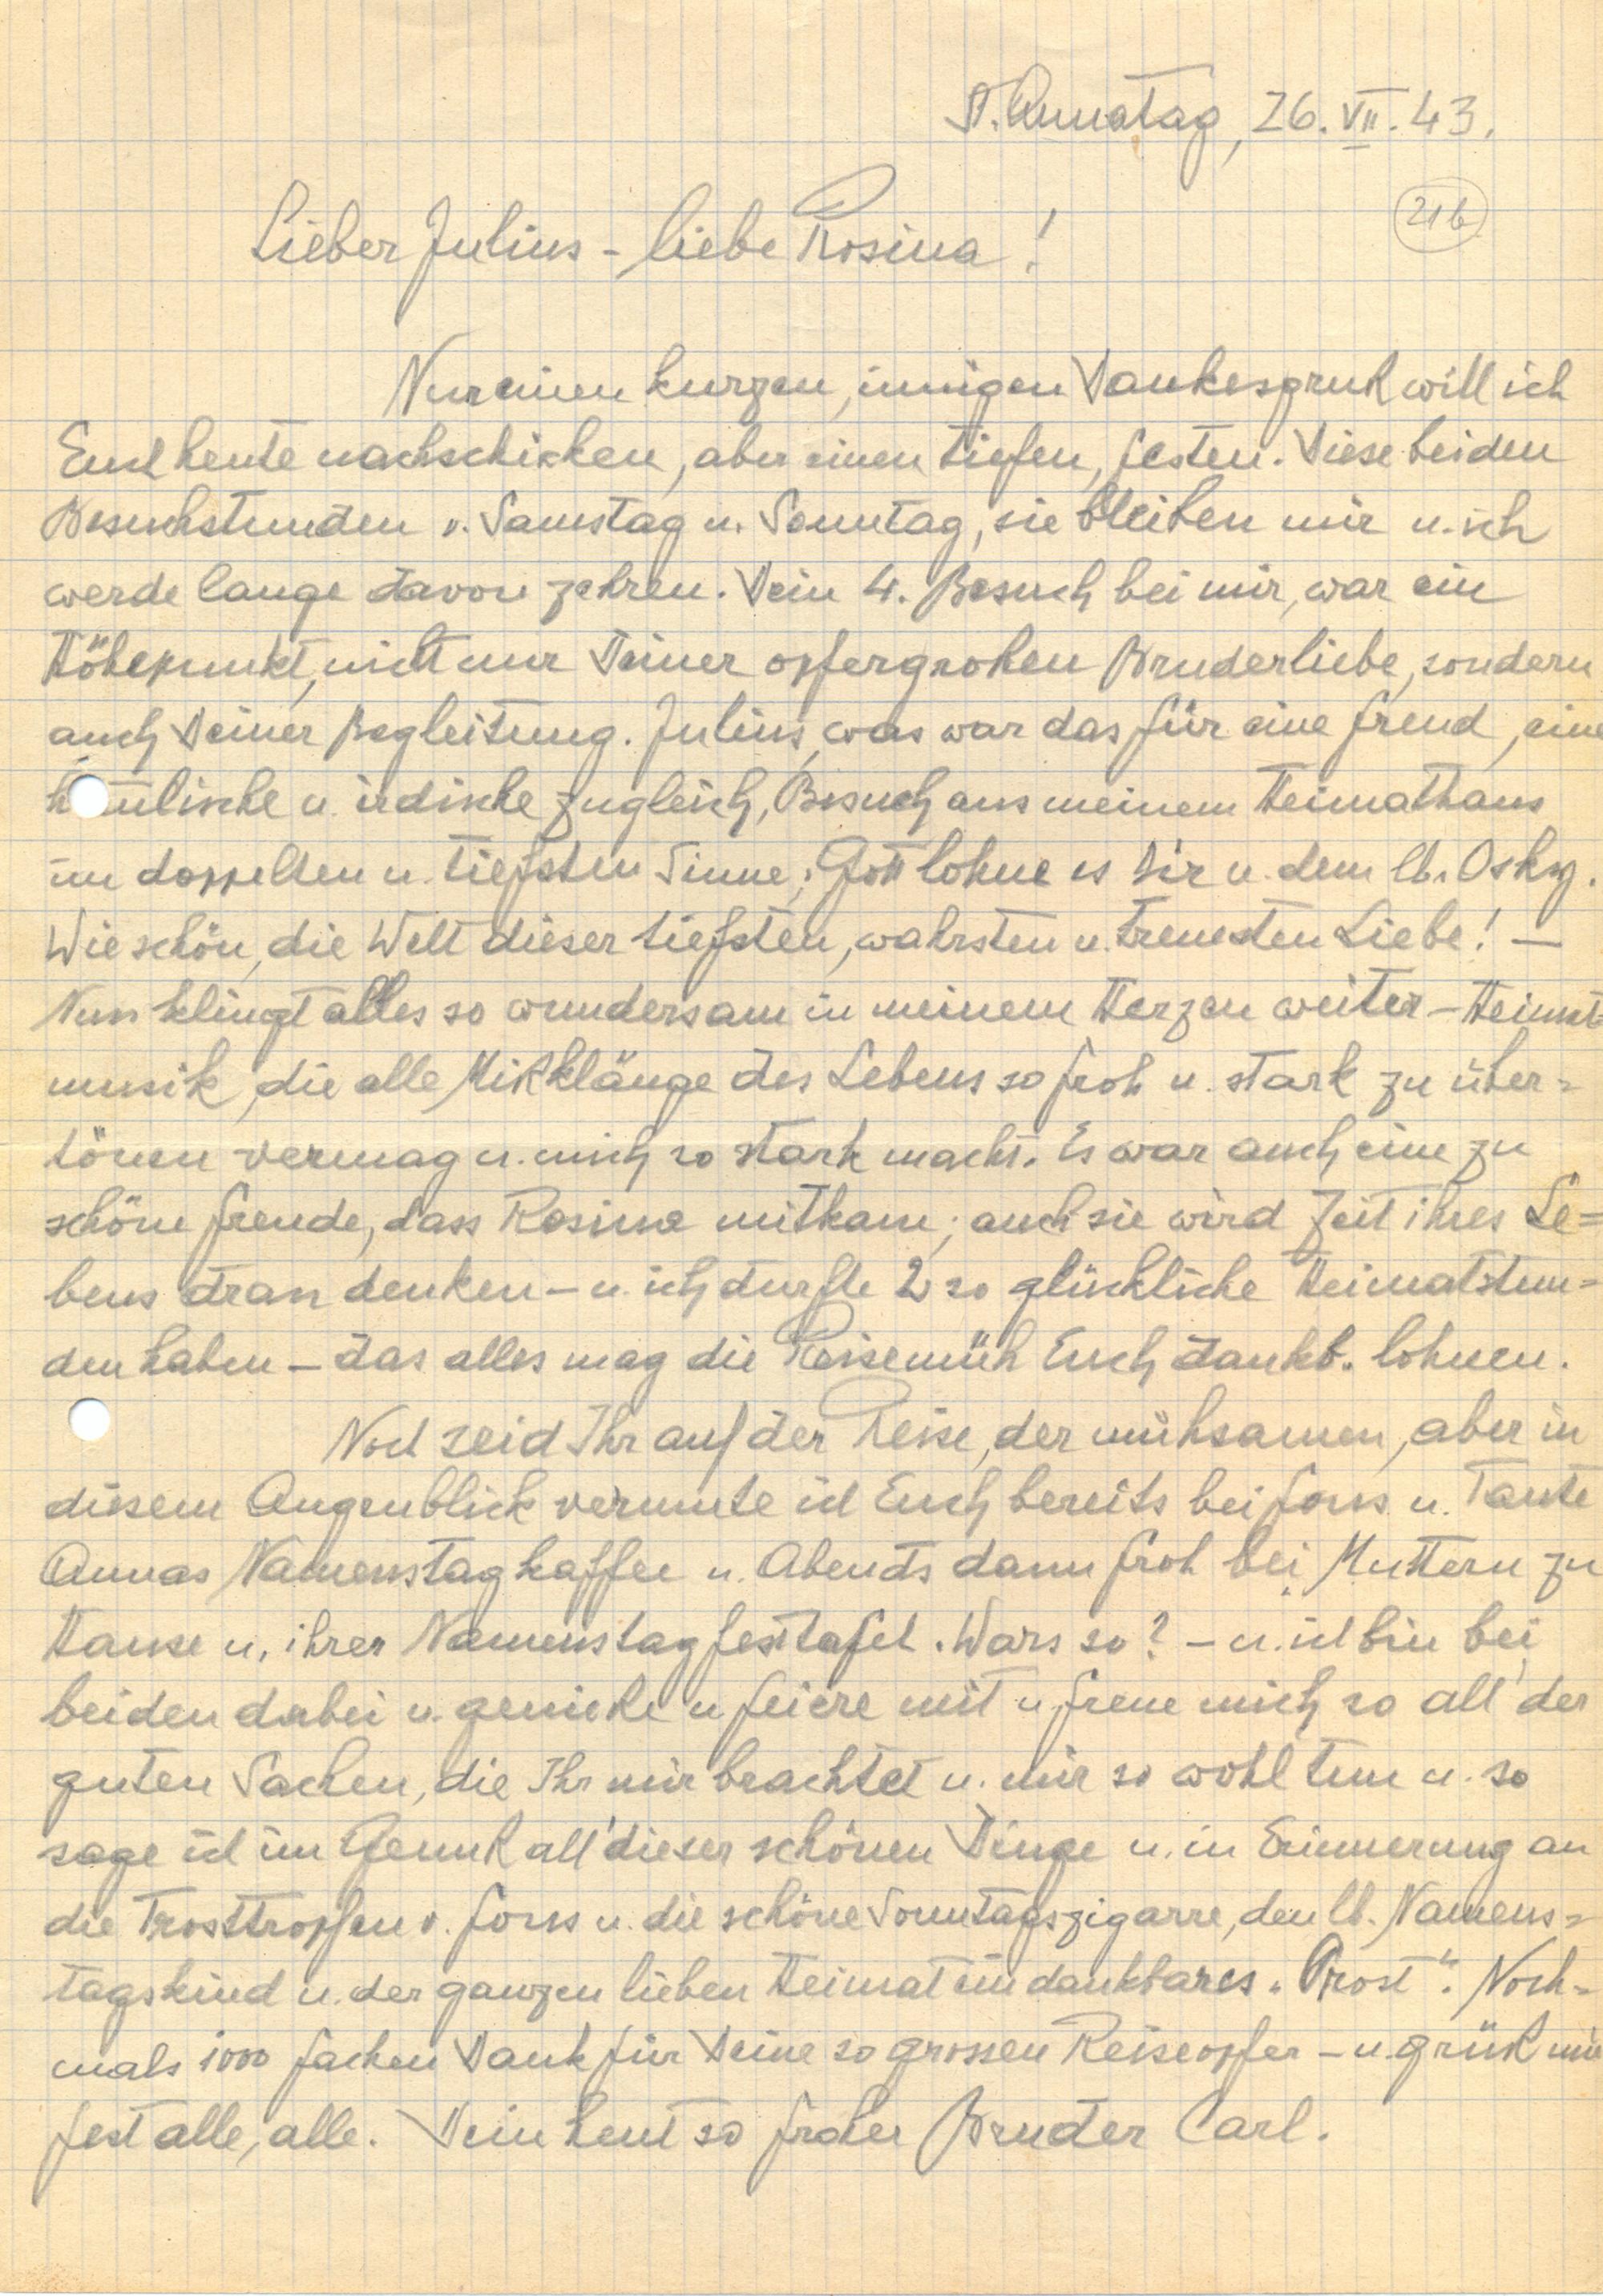 St. Annatag, 26. VII. 43.
21b
Lieber Julius - liebe Rosina!
Nur einen kurzen, innigen Dankesgruß will ich
Euch heute nachschicken, aber einen tiefen, festen. Diese beiden
Besuchstunden v. Samstag u. Sonntag, sie bleiben mir u. ich
werde lange davon zehren. Dein 4. Besuch bei mir, war ein
Höhepunkt, nicht nur Deiner opfergroßen Bruderliebe, sondern
auch Deiner Begleitung. Julius, was war das für eine Freud, eine
himmlische u. irdische zugleich, Besuch aus meinem Heimathaus
im doppelten u. tiefsten Sinne; Gott lohne es Dir u. dem lb. Osky.
Wie schön, die Welt dieser tiefsten, wahrsten u. treuesten Liebe! —
Nun klingt alles so wundersam in meinem Herzen weiter - Heimat=
musik, die alle Mißklänge des Lebens so froh u. stark zu über=
tönen vermag u. mich so stark macht. Es war auch eine zu
schöne Freude, dass Rosina mitkam; auch sie wird Zeit ihres Le=
bens dran denken - u. ich durfte 2 so glückliche Heimatstun=
den haben - das alles mag die Reisemüh Euch dankb. lohnen.
Noch seid Ihr auf der Reise, der mühsamen, aber in
diesem Augenblick vermute ich Euch bereits bei Forss u. Tante
Annas Namenstagkaffee u. Abends dann froh bei Muttern zu
Hause u. ihrer Namenstagfesttafel. Wars so? - u. ich bin bei
beiden dabei u. genieße u feiere mit u. freue mich so all' der
guten Sachen, die Ihr mir brachtet u. mir so wohl tun u. so
sage ich im Genuß all' dieser schönen Dinge u. in Erinnerung an
die Trosttropfen v. Forss u. die schöne Sonntagszigarre, den lb. Namens=
tagskind u. der ganzen lieben Heimat ein dankbares „Prost". Noch=
mals 1000 fachen Dank für Deine so grossen Reiseopfer - u. grüß mir
fest alle, alle. Dein heut so froher Bruder Carl.